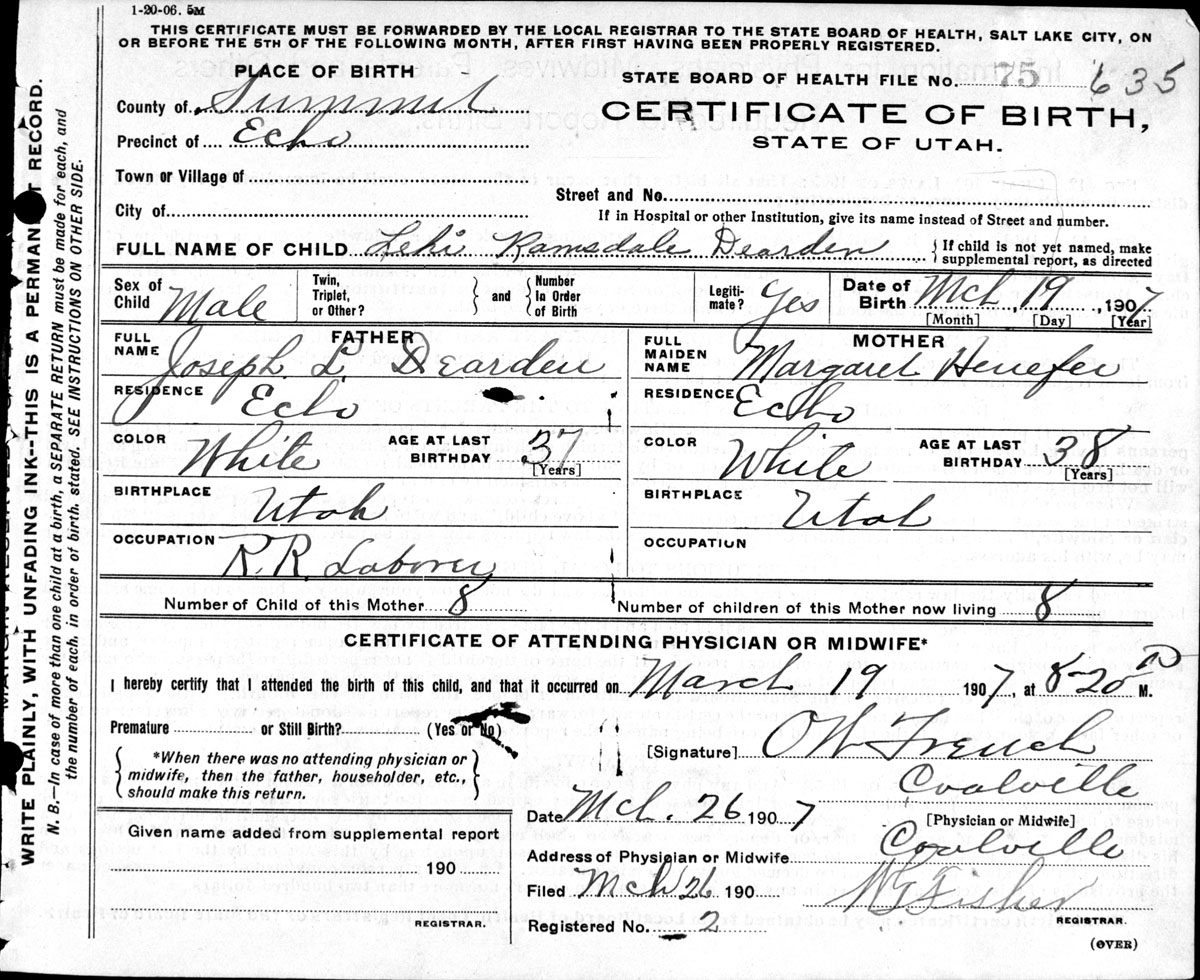 1-20-06. 5M
THIS CERTIFICATE MUST BE FORWARDED BY THE LOCAL REGISTRAR TO THE STATE BOARD OF HEALTH, SALT LAKE CITY, ON
OR BEFORE THE 5TH OF THE FOLLOWING MONTH, AFTER FIRST HAVING BEEN PROPERLY REGISTERED.
PLACE OF BIRTH
County of Summit
Precinct of Echo
Town or Village of
City of
STATE BOARD OF HEALTH FILE NO. 75 635
CERTIFICATE OF BIRTH,
STATE OF UTAH.
Street and No.
If in Hospital or other Institution, give its name instead of Street and number.
FULL NAME OF CHILD Lehi Ramsdale Dearden { If child is not yet named, make
supplemental report, as directed
Sex of Child Male
Twin, Triplet, or Other? } and { Number In Order of Birth
Legiti-mate? Yes
Date of Birth Mch 19, 1907
[Month] [Day] [Year]
FATHER
FULL NAME Joseph. L. Dearden
RESIDENCE Echo
COLOR White AGE AT LAST BIRTHDAY 37
[Years]
BIRTHPLACE Utah
OCCUPATION R.R. Laborer
MOTHER
FULL MAIDEN NAME Margaret Henefer
RESIDENCE Echo
COLOR White AGE AT LAST BIRTHDAY 38
[Years]
BIRTHPLACE Utah
OCCUPATION
Number of Child of this Mother 8 Number of children of this Mother now living 8
CERTIFICATE OF ATTENDING PHYSICIAN OR MIDWIFE*
I hereby certify that I attended the birth of this child, and that it occurred on March 19 1907, at 8-20 P M.
Premature or Still Birth? (Yes or No)
{ *When there was no attending physician or
midwife, then the father, householder, etc.,
should make this return. }
Given name added from supplemental report
190
REGISTRAR.
[Signature] French
Coalville
Date Mch. 26 1907 [Physician or Midwife]
Address of Physician or Midwife Coalville
Filed Mch 26 190 Fisher
Registered No. 2 REGISTRAR.
(OVER)
WRITE PLAINLY, WITH UNFADING INK--THIS IS A PERMANENT RECORD.
N. B.—In case of more than one child at a birth, a SEPARATE RETURN must be made for each, and
the number of each, in order of birth, stated. SEE INSTRUCTIONS ON OTHER SIDE.